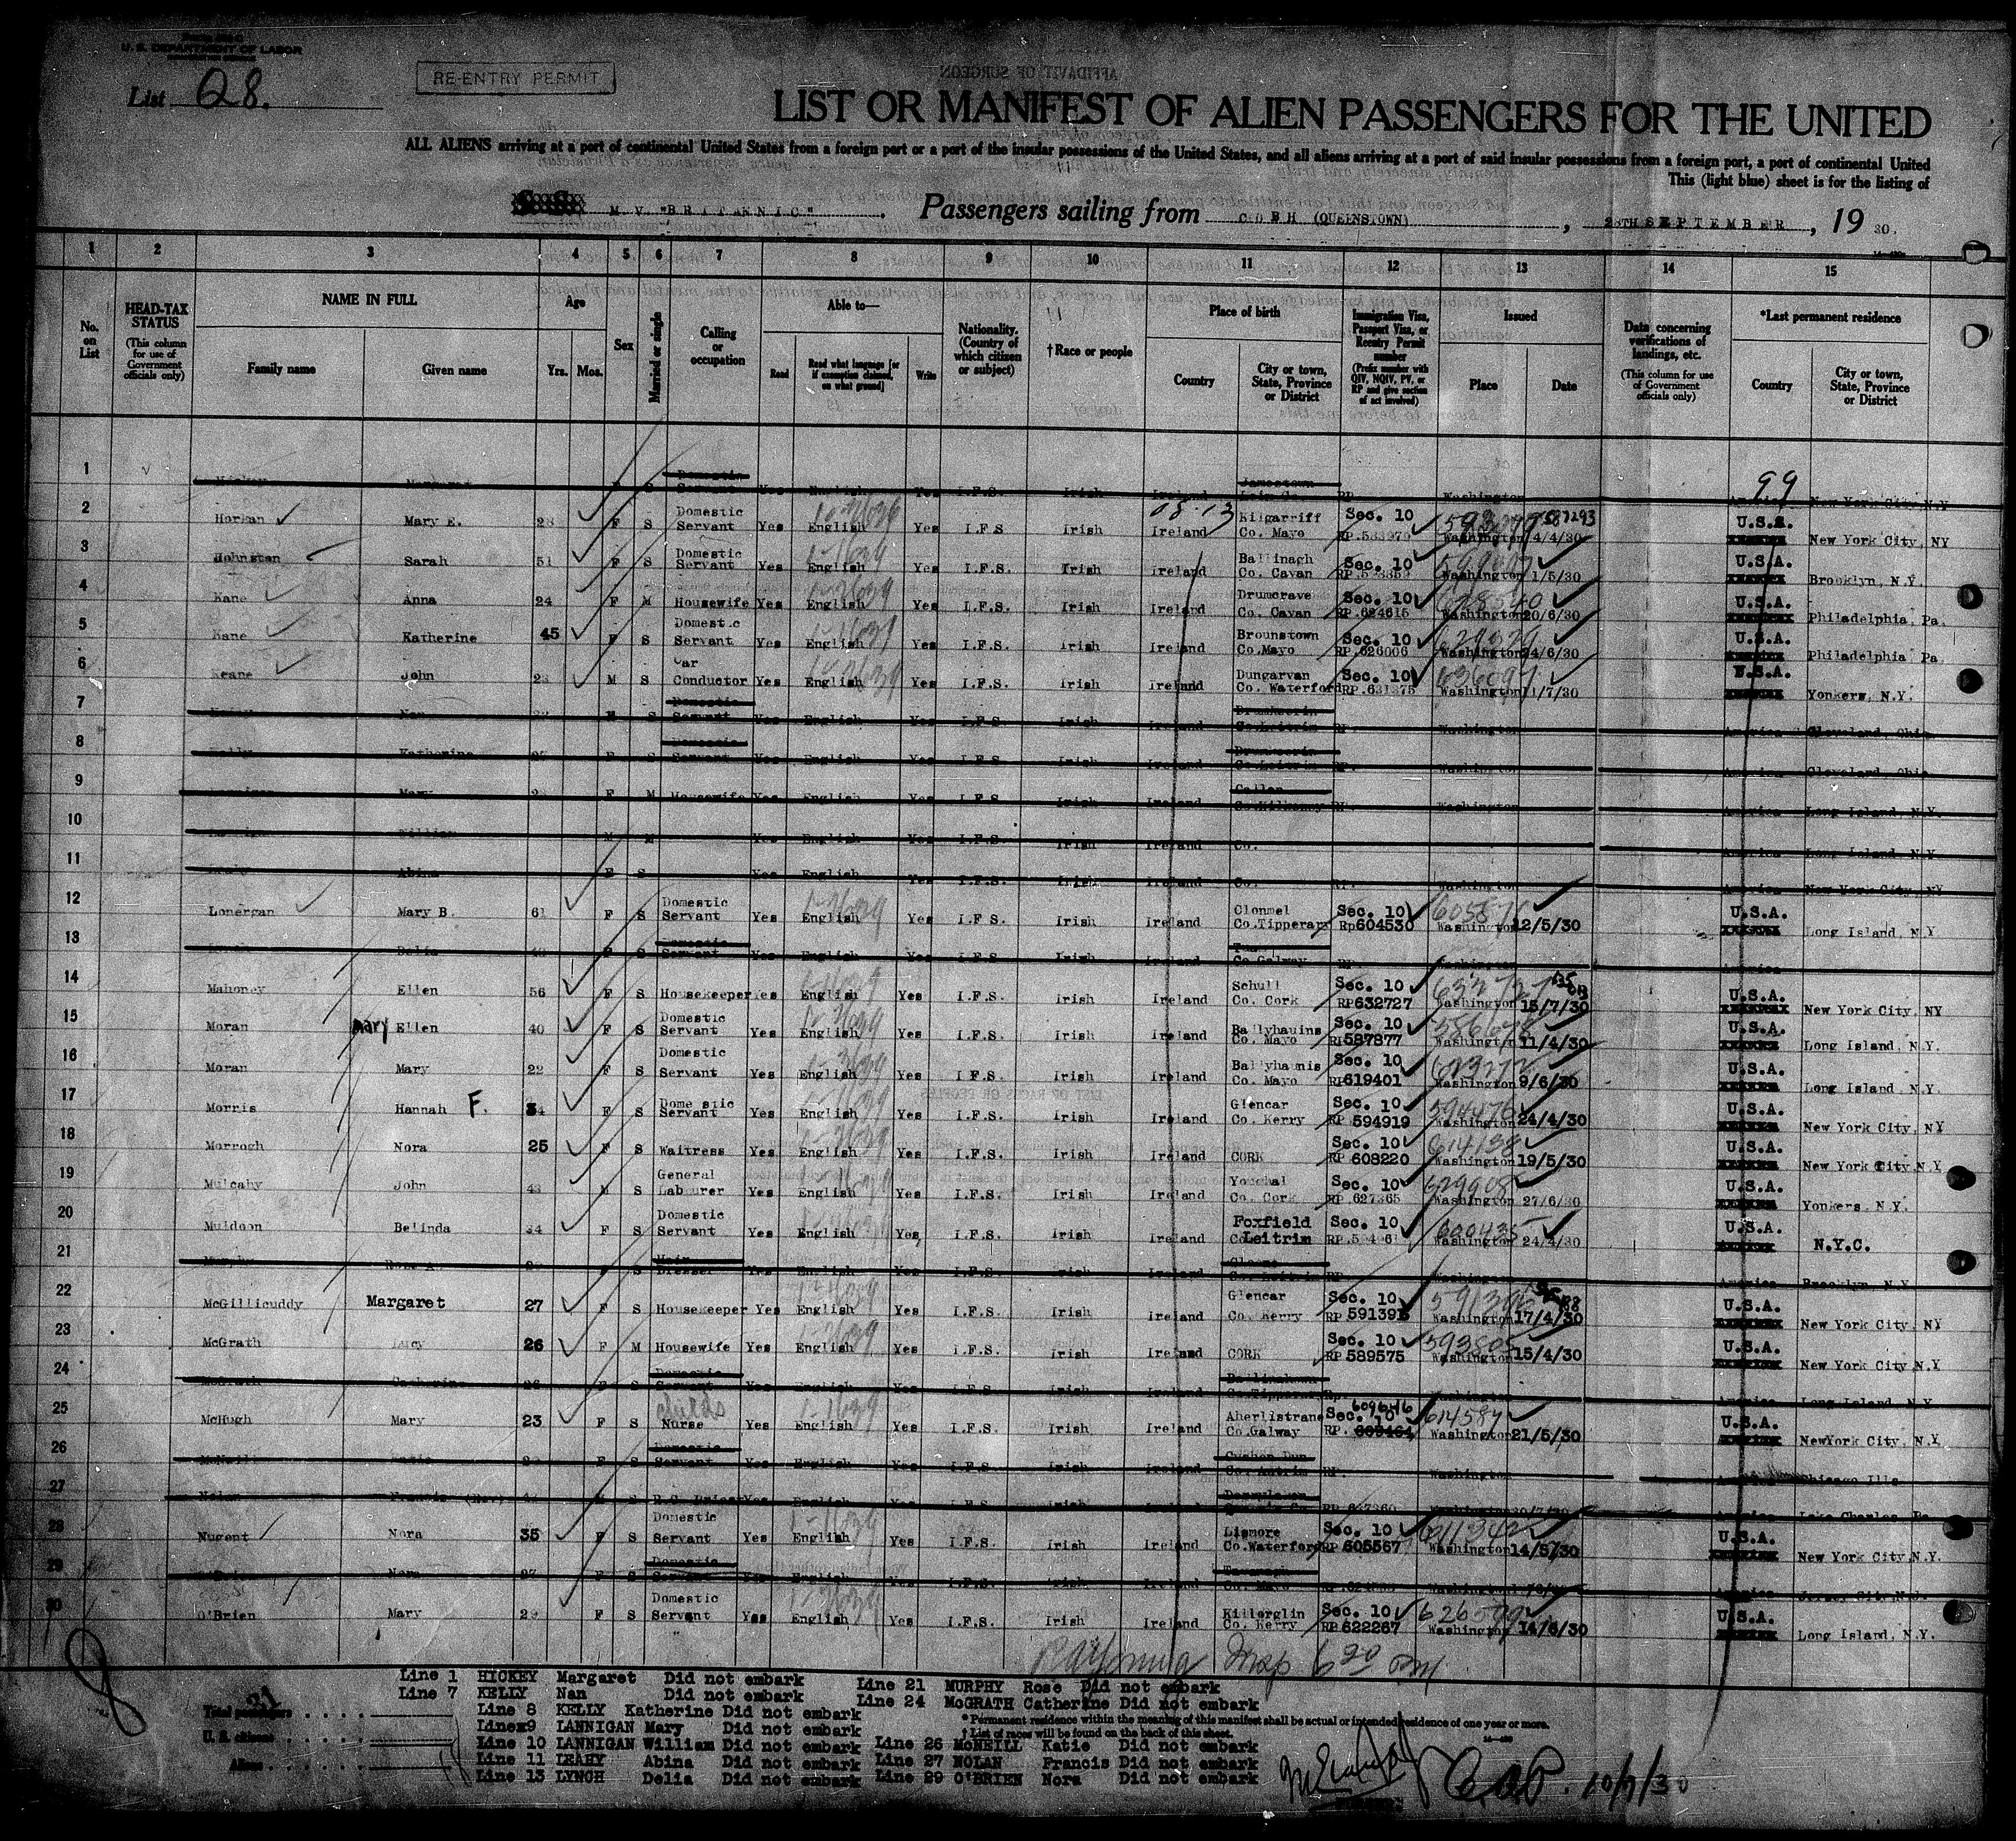 U. S. DEPARTMENT OF LABOR
List Q8.
RE-ENTRY PERMIT
AFFIDAVIT OF SURGEON
LIST OR MANIFEST OF ALIEN PASSENGERS FOR THE UNITED
ALL ALIENS arriving at a port of continental United States from a foreign port or a port of the insular possessions of the United States, and all aliens arriving at a port of said insular possessions from a foreign port, a port of continental United
This (light blue) sheet is for the listing of
M.V. "BRITANNIC" Passengers sailing from COBH (QUEENSTOWN), 28TH SEPTEMBER, 19 30.
1 2 3 4 5 6 7 8 9 10 11 12 13 14 15
No. on List
HEAD-TAX STATUS (This column for use of Government officials only)
NAME IN FULL Family name Given name
Age Yrs. Mos.
Sex
Married or single
Calling or occupation
Able to— Read Read what language [or if exemption claimed, on what ground] Write
Nationality. (Country of which citizen or subject)
†Race or people
Place of birth Country City or town, State, Province or District
Immigration Visa, Passport Visa, or Reentry Permit number (Prefix number with QIV, NQIV, PV, or RP and give section of act involved)
Issued Place Date
Data concerning verifications of landings, etc. (This column for use of Government officials only)
*Last permanent residence Country City or town, State, Province or District
1 Margaret S Domestic Servant Yes English Yes I.F.S. Irish Ireland Jamestown RP. Washington 99 New York City, N.Y
2 Horkan Mary E. 28 F S Domestic Servant Yes English Yes I.F.S Irish Ireland Kilgarriff Co. Mayo Sec. 10 Washington 4/4/30 U.S.A. New York City, NY
3 Johnston Sarah 51 F S Domestic Servant Yes English Yes I.F.S. Irish Ireland Ballinagh Co. Cavan Sec. 10 Washington 1/5/30 U.S.A. Brooklyn, N.Y.
4 Kane Anna 24 F M Housewife Yes English Yes I.F.S. Irish Ireland Drumcrave Co. Cavan Sec. 10 RP.624615 Washington 20/6/30 U.S.A. Philadelphia, Pa.
5 Kane Katherine 45 F S Domestic Servant Yes English Yes I.F.S. Irish Ireland Brounstown Co.Mayo Sec. 10 RP.626006 Washington 24/6/30 U.S.A. Philadelphia Pa
6 Keane John 28 M S Car Conductor Yes English Yes I.F.S. Irish Ireland Dungarvan Co. Waterford Sec. 10 RP.631375 Washington 11/7/30 U.S.A. Yonkers, N.Y.
7 Nan S Domestic Servant Yes English Yes I.F.S Irish Ireland Co.Leitrim RP Washington America Cleveland, Ohio
8 Kelly Katherine F S Domestic Servant Yes English Yes I.F.S Irish Ireland Co.Leitrim RP. Washington America Cleveland, Ohio
9 Mary F M Housewife Yes English Yes I.F.S Irish Ireland Callan Co.Kilkenny Washington America Long Island, N.Y.
10 William M M Yes English Yes Irish Ireland Co. America Long Island N.Y.
11 Leahy Abina F S Yes English Yes I.F.S. Irish Ireland Co. RP. Washington America New York City, NY
12 Lonergan Mary B. 61 F S Domestic Servant Yes English Yes I.F S. Irish Ireland Clonmel Co.Tipperary Sec. 10 Rp604530 Washington 12/5/30 U.S.A. Long Island, N.Y
13 Delia F S Domestic Servant Yes English Yes I.F.S Irish Ireland Co Galway RP Washington America
14 Mahoney Ellen 56 F S Housekeeper Yes English Yes I.F.S. Irish Ireland Schull Co. Cork Sec. 10 RP632727 Washington 15/7/30 U.S.A. New York City, NY
15 Moran Mary Ellen 40 F S Domestic Servant Yes English Yes I.F.S. Irish Ireland Ballyhauins Co. Mayo Sec. 10 RP587877 Washington 11/4/30 U.S.A. Long Island, N.Y.
16 Moran Mary 22 F S Domestic Servant Yes English Yes I F.S. Irish Ireland Ballyhaunis Co. Mayo Sec. 10 RP619401 Washington 9/6/30 U.S.A. Long Island, N.Y.
17 Morris Hannah F. 34 F S Domestic Servant Yes English Yes I.F.S. Irish Ireland Glencar Co. Kerry Sec. 10 RP 594919 594476 Washington 24/4/30 U.S.A. New York City, NY
18 Morrogh Nora 25 F S Waitress Yes English Yes I.F.S. Irish Ireland CORK Sec. 10 RP 608220 614138 Washington 19/5/30 U.S.A. New York City, N.Y
19 Mulcahy John 43 M S General Labourer Yes English Yes I.F.S. Irish Ireland Youghal Co. Cork Sec. 10 RP.627365 629908 Washington 27/6/30 U.S.A. Yonkers, N.Y.
20 Muldoon Belinda 34 F S Domestic Servant Yes English Yes I.F.S. Irish Ireland Foxfield Co Leitrim Sec. 10 600435 Washington 24/4/30 U.S.A. N.Y.C.
21 Murphy Rose A. S Hair Dresser Yes English Yes I.F.S. Irish Ireland Co. Leitrim RP Washington America Brooklyn, N.Y
22 McGillicuddy Margaret 27 F S Housekeeper Yes English Yes I.F.S. Irish Ireland Glencar Co. Kerry Sec. 10 RP 591395 Washington 17/4/30 U.S.A. New York City, NY
23 McGrath Lucy 26 F M Housewife Yes English Yes I.F.S. Irish Ireland CORK Sec. 10 RP 589575 593805 Washington 15/4/30 U.S.A. New York City N.Y
24 McGrath Catherine 26 F S Domestic Servant Yes English Yes I.F.S Irish Ireland Co.Tipperary Rp. Washington America Long Island, N.Y
25 McHugh Mary 23 F S Childs Nurse Yes English Yes I.F.S Irish Ireland Aherlistrane Co.Galway Sec. 10 609646 RP. 609464 614587 Washington 21/5/30 U.S.A. NewYork City, N.Y
26 McNeill Katie F S Domestic Servant Yes English Yes I.F.S. Irish Ireland Cushen Dun Co. Antrim RP. Washington Chicago Ills
27 Nolan Francis (Rev) S R.C. Priest Yes English Yes I.F.S Irish Ireland RP 637360 Washington America Lake Charles,
28 Nugent Nora 35 F S Domestic Servant Yes English Yes I.F.S. Irish Ireland Lismore Co.Waterford Sec. 10 RP 605567 611342 Washington 14/5/30 U.S.A. New York City, N.Y.
29 O'Brien Nora 27 F S Domestic Servant Yes English Yes I.F.S. Irish Ireland Co. Mayo Washington America Jersey City, N.J.
30 O'Brien Mary 29 F S Domestic Servant Yes English Yes I.F.S. Irish Ireland Killorglin Co. Kerry Sec. 10 RP 622267 626599 Washington 14/6/30 U.S.A. Long Island, N.Y.
Insp 6 30 PM
Line 1 HICKEY Margaret Did not embark
Line 7 KELLY Nan Did not embark
Line 8 KELLY Katherine Did not embark
Linex9 LANNIGAN Mary Did not embark
Line 10 LANNIGAN William Did not embark
Line 11 LEAHY Abina Did not embark
Line 13 LYNCH Delia Did not embark
Line 21 MURPHY Rose Did not embark
Line 24 McGRATH Catherine Did not embark
* Permanent residence within the meaning of this manifest shall be actual or intended residence of one year or more.
† List of races will be found on the back of this sheet.
Line 26 McNEILL Katie Did not embark
Line 27 NOLAN Francis Did not embark
Line 29 O'BRIEN Nora Did not embark
Total passengers 21
U. S. citizens
Aliens
10/7/30